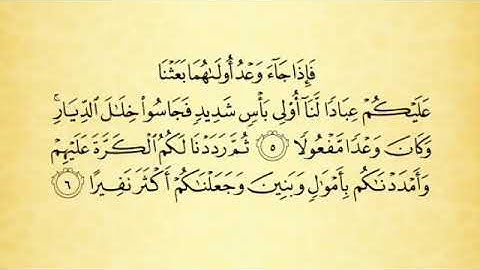 فَإِذَا جَآءَ وَعْدُ أُولَىٰهُمَا بَعَثْنَا
عَلَيْكُمْ عِبَادًا لَّنَآ أُو۟لِى بَأْسٍ شَدِيدٍ فَجَاسُوا۟ خِلَـٰلَ ٱلدِّيَارِ ۚ
وَكَانَ وَعْدًا مَّفْعُولًا ۝٥ ثُمَّ رَدَدْنَا لَكُمُ ٱلْكَرَّةَ عَلَيْهِمْ
وَأَمْدَدْنَـٰكُم بِأَمْوَٰلٍ وَبَنِينَ وَجَعَلْنَـٰكُمْ أَكْثَرَ نَفِيرًا ۝٦